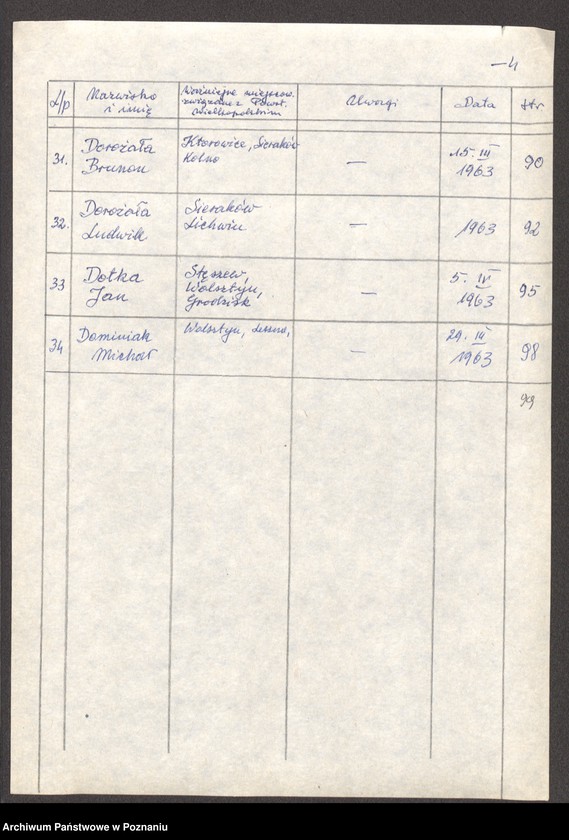 -4
L/p Nazwisko i imię Ważniejsze miejscow. związane z Powst. Wielkopolskim Uwagi Data Str
31. Dorożała Brunon Sieraków Kolno — 15. III 1963 90
32. Dorożała Ludwik Sieraków Lichwin — 1963 92
33 Dotka Jan Stęszew, Wolsztyn, Grodzisk — 5. IV 1963 95
34 Dominiak Michał Wolsztyn, Leszno, — 29. III 1963 98
99
Archiwum Państwowe w Poznaniu